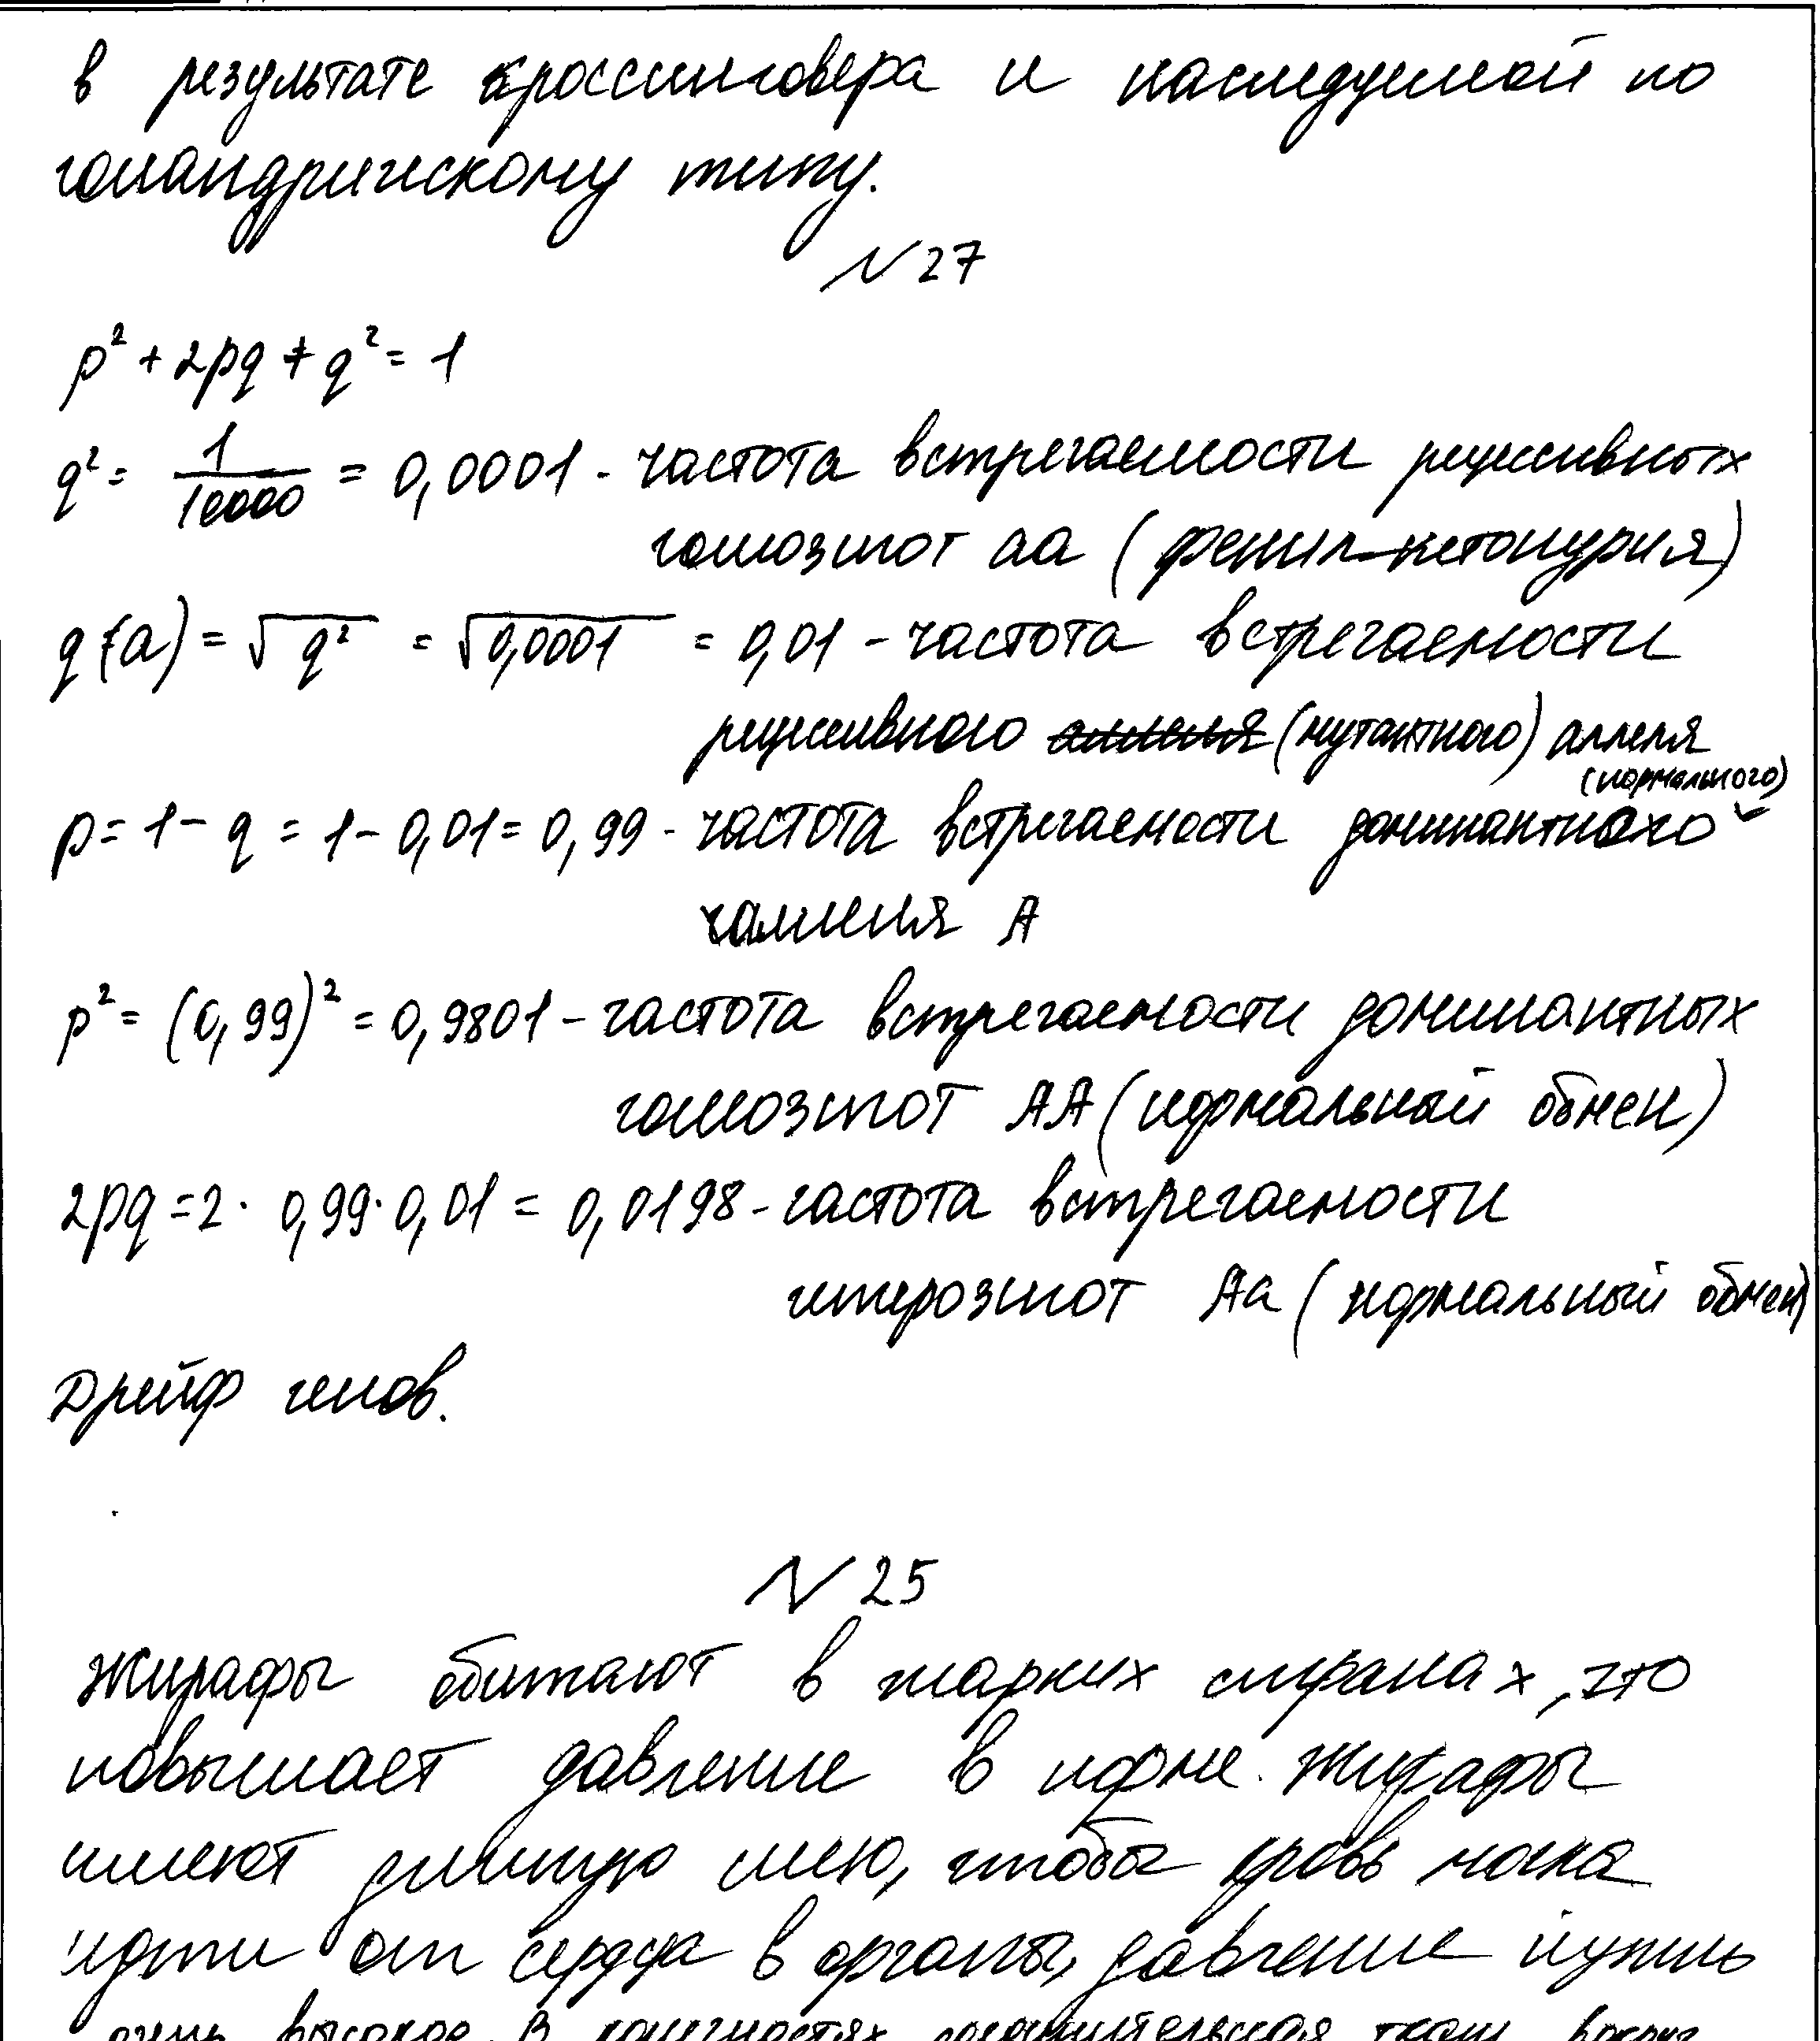 в результате кроссинговера и наследуемой по
голандрическому типу.
N 27
p² + 2pq + q² = 1
q² = 1/10000 = 0,0001 - частота встречаемости рецессивных
гомозигот аа (фенилкетонурия)
q(a) = √q² = √0,0001 = 0,01 - частота встречаемости
рецессивного аллеля (мутантного) аллеля
(нормального)
p = 1 - q = 1 - 0,01 = 0,99 - частота встречаемости доминантного
аллеля А
p² = (0,99)² = 0,9801 - частота встречаемости доминантных
гомозигот АА (нормальный обмен)
2pq = 2 · 0,99 · 0,01 = 0,0198 - частота встречаемости
гетерозигот Аа (нормальный обмен)
Дрейф генов.
N 25
Жирафы обитают в жарких странах, что
повышает давление в норме. Жирафы
имеют длинную шею, чтобы кровь могла
идти от сердца в органы, давление нужно
очень высокое. В конечностях соединительная ткань вокруг